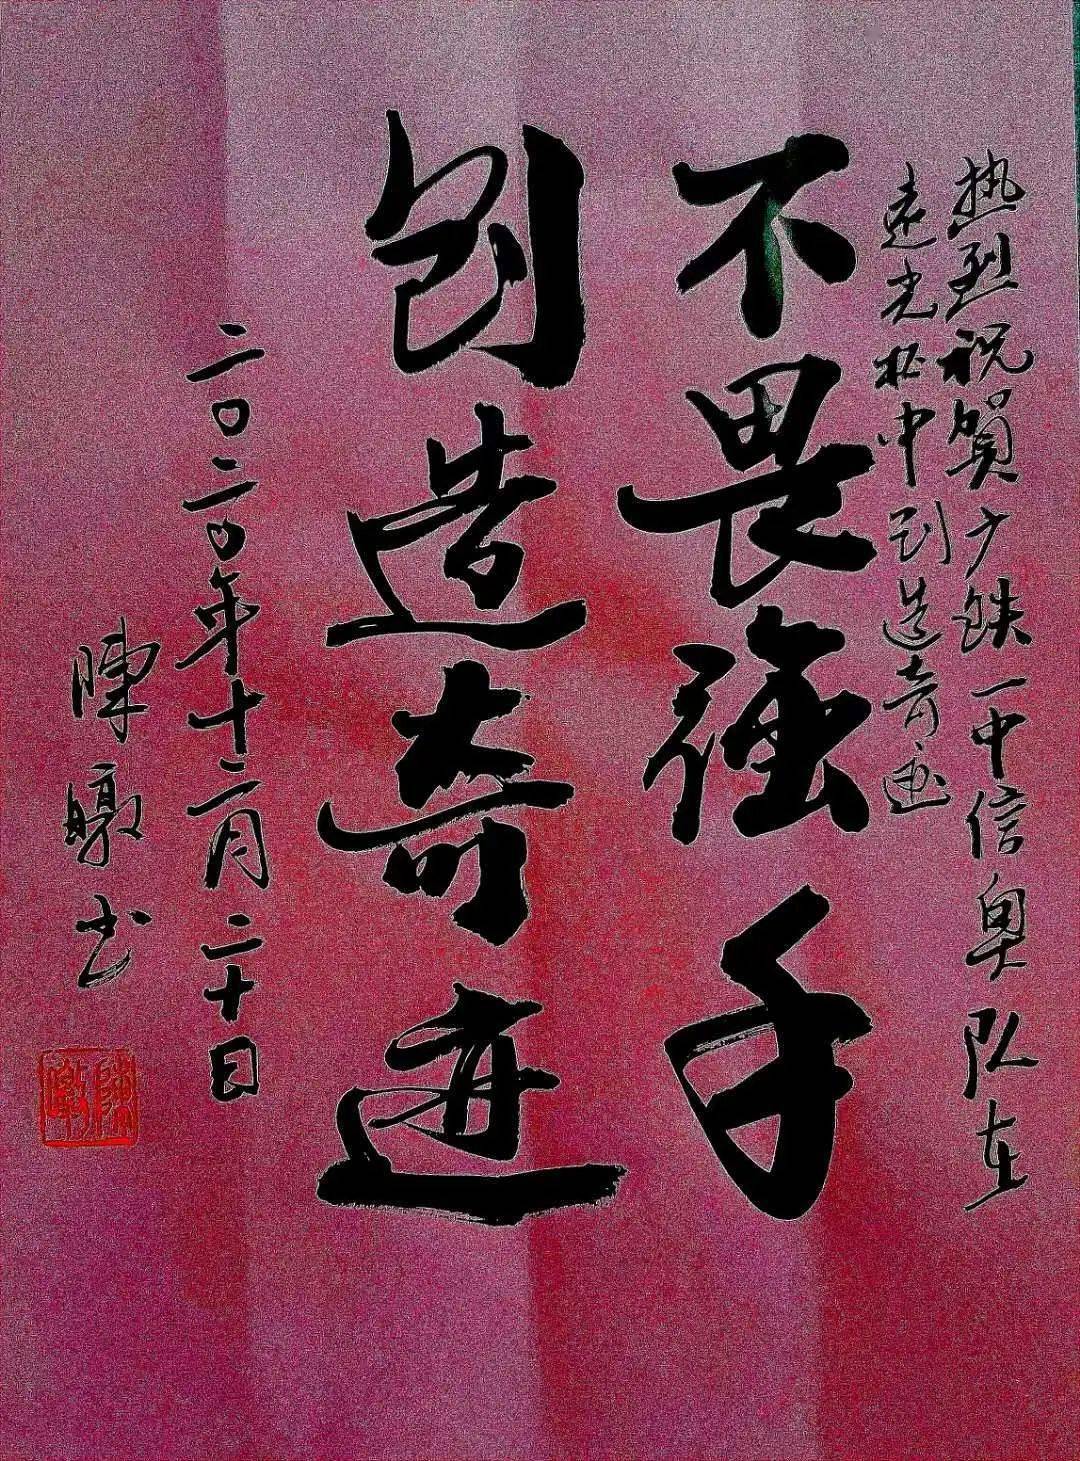 热烈祝賀广铁一中信奥队在
遠光杯中创造奇迹
不畏强手
创造奇迹
二〇二〇年十二月二十日
陳书